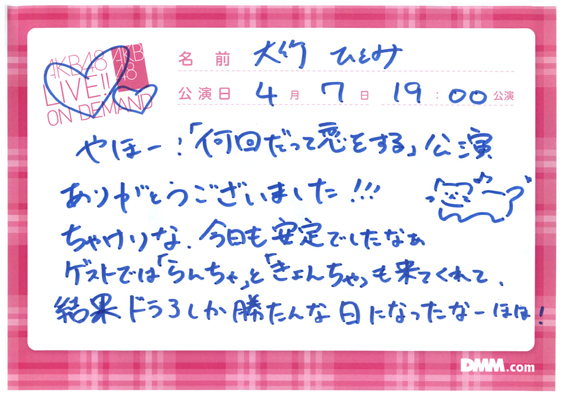 AKB48
LIVE!!
ON DEMAND
AKB
48
名前 大竹 ひとみ
公演日 4月7日 19:00公演
やほー!「何回だって恋をする」公演
ありがとうございました!!!
ちゃけりな、今日も安定でしたなぁ
ゲストでは「らんちゃ」と「きょんちゃ」も来てくれて、
結果ドラ3しか勝たんな日になったなーほほ!
DMM.com